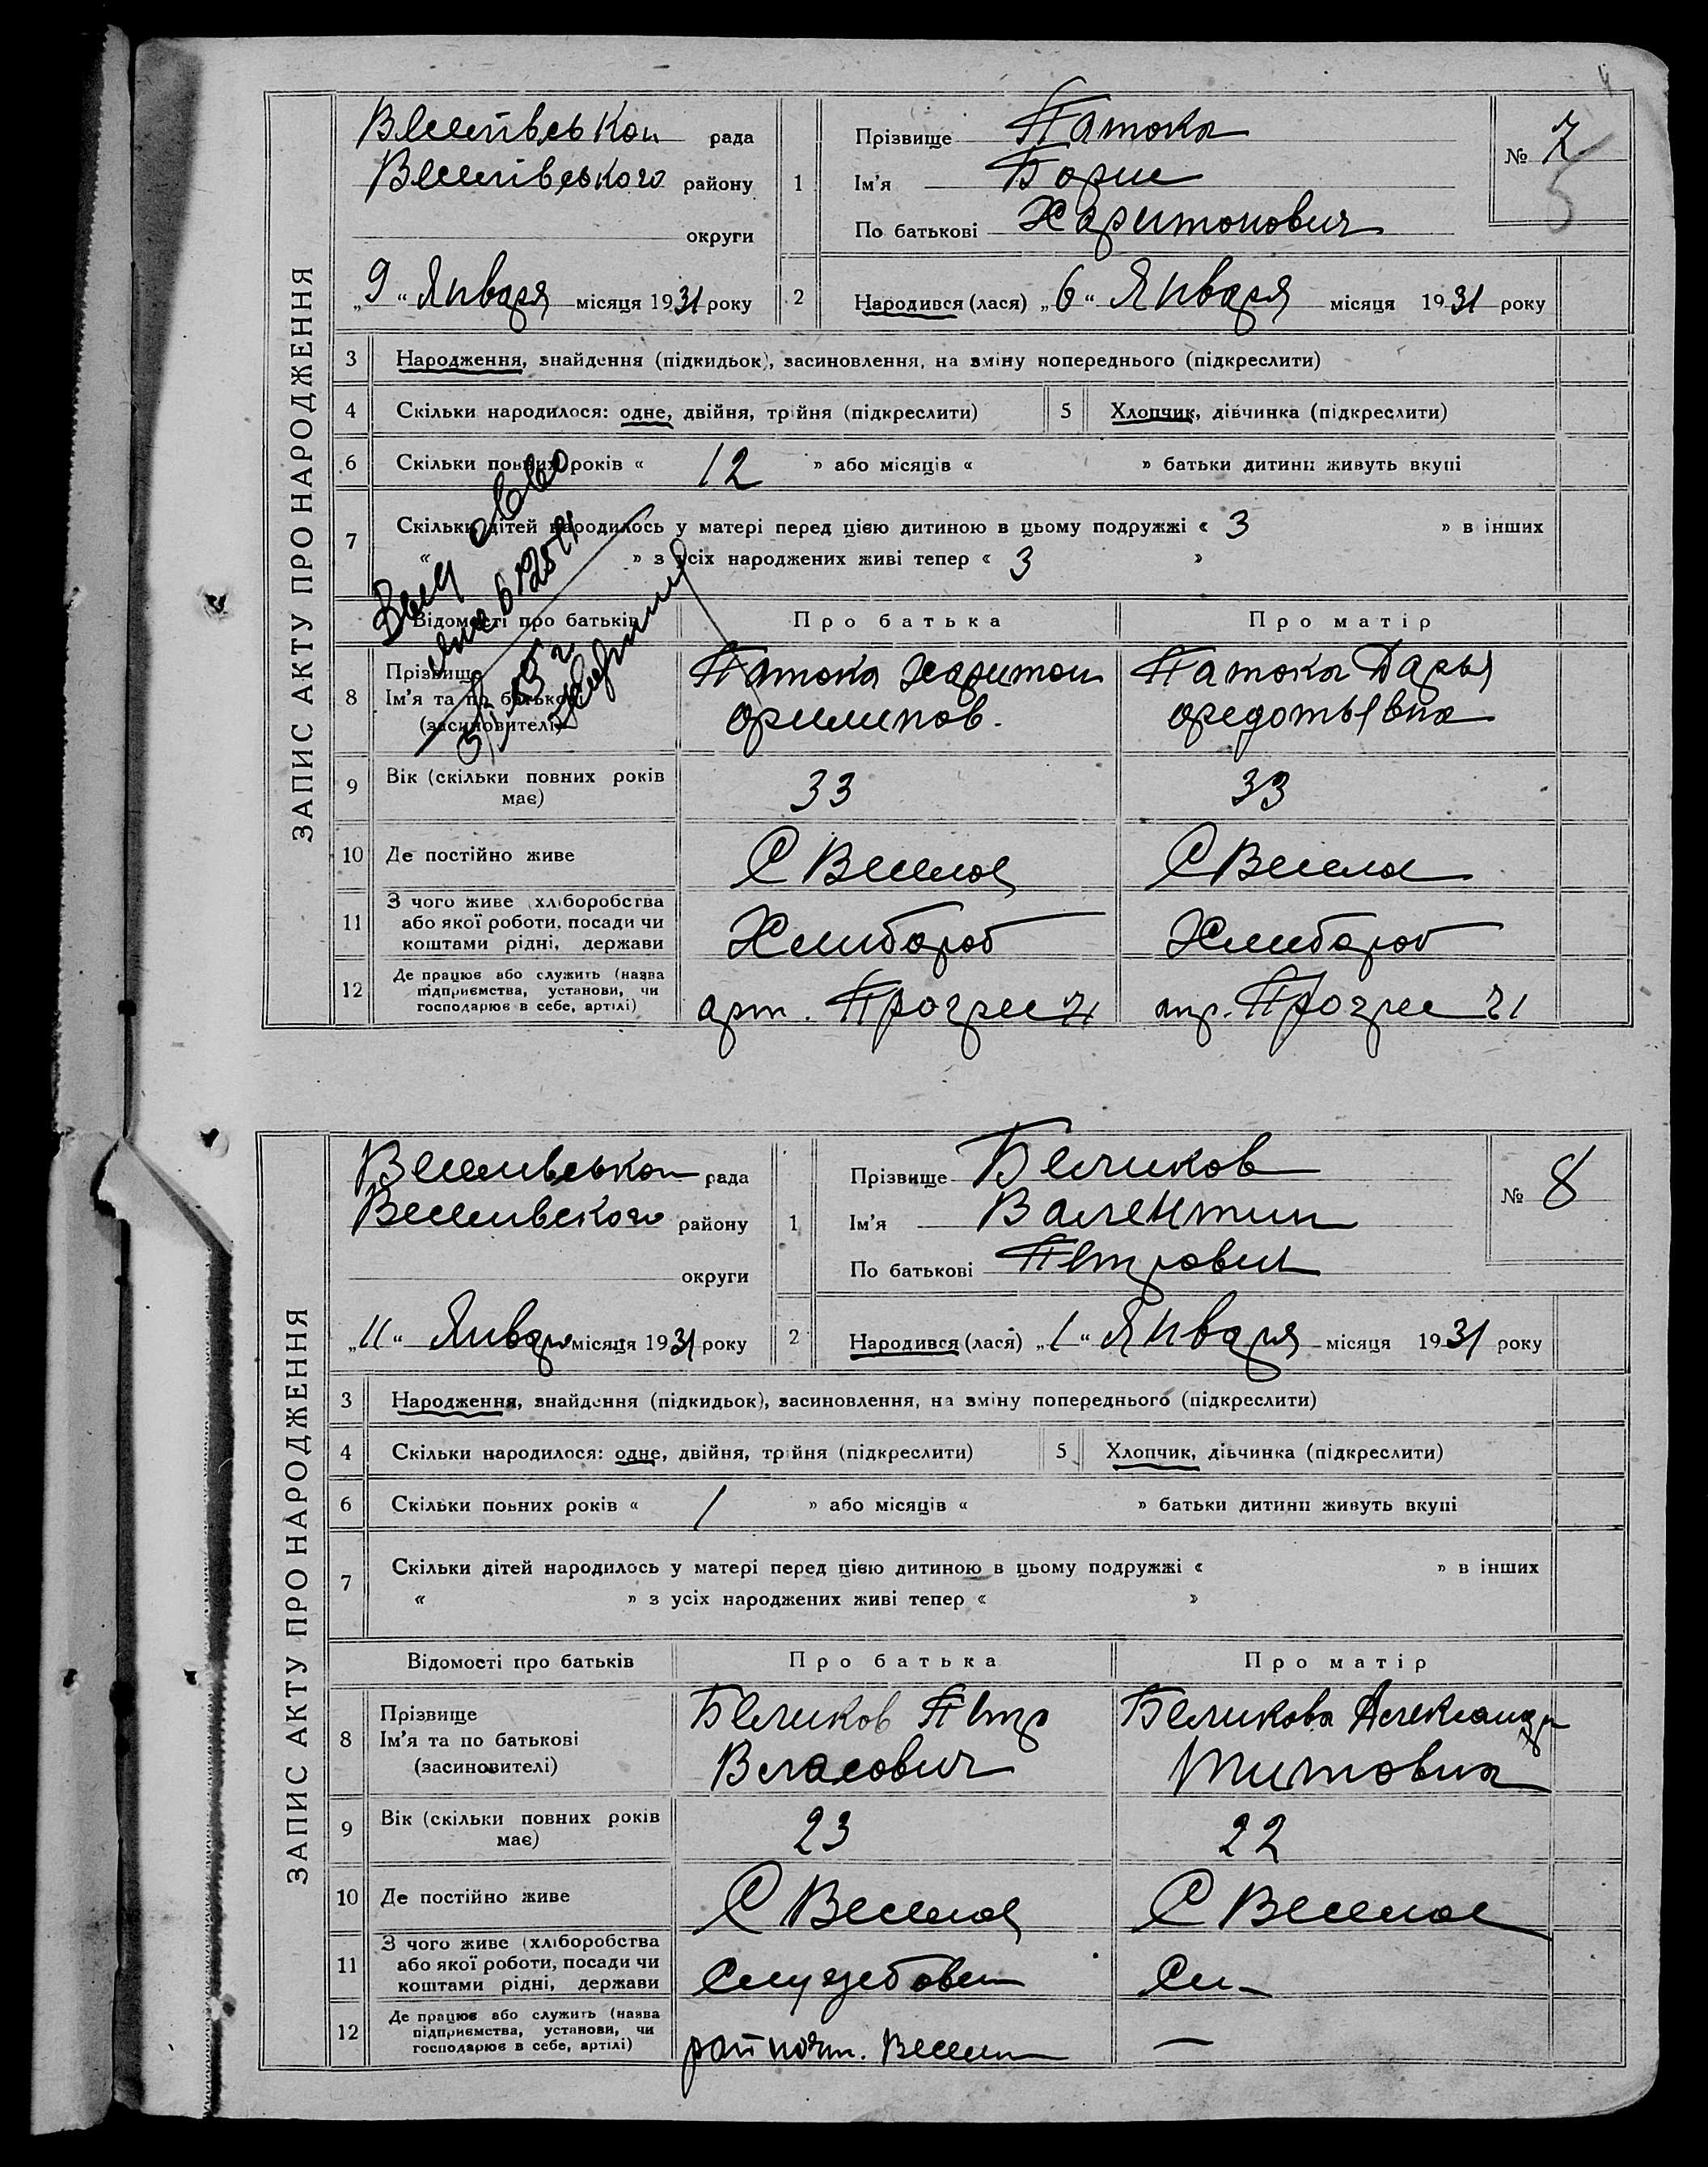 ЗАПИС АКТУ ПРО НАРОДЖЕННЯ
рада
Веселівського району
округи
„9“ Января місяця 1931 року
1
Прізвище Патока
Ім'я Борис
По батькові Харитонович
№ 7
5
2 Народився (лася) „6“ Января місяця 1931 року
3 Народження, знайдення (підкидьок), засиновлення, на зміну попереднього (підкреслити)
4 Скільки народилося: одне, двійня, трійня (підкреслити) 5 Хлопчик, дівчинка (підкреслити)
6 Скільки повних років « 12 » або місяців « » батьки дитини живуть вкупі
7 Скільки дітей народилось у матері перед цією дитиною в цьому подружжі « 3 » в інших
« » з усіх народжених живі тепер « 3 »
Відомості про батьків Про батька Про матір
8 Прізвище
Ім'я та по батькові
(засиновителі)
Патока Харитон
Филипов.
Патока Дарья
Федотьевна
9 Вік (скільки повних років має) 33 33
10 Де постійно живе С Веселое С Весела
11 З чого живе (хліборобства
або якої роботи, посади чи
коштами рідні, держави
Хлибороб Хлибороб
12 Де працює або служить (назва
підприємства, установи, чи
господарює в себе, артілі)
арт. Прогрес 21 Прогрес 21
ЗАПИС АКТУ ПРО НАРОДЖЕННЯ
рада
району
округи
„11“ Января місяця 1931 року
1
Прізвище Беликов
Ім'я Валентин
По батькові Петрович
№ 8
2 Народився (лася) „1“ Января місяця 1931 року
3 Народження, знайдення (підкидьок), засиновлення, на зміну попереднього (підкреслити)
4 Скільки народилося: одне, двійня, трійня (підкреслити) 5 Хлопчик, дівчинка (підкреслити)
6 Скільки повних років « 1 » або місяців « » батьки дитини живуть вкупі
7 Скільки дітей народилось у матері перед цією дитиною в цьому подружжі « » в інших
« » з усіх народжених живі тепер « »
Відомості про батьків Про батька Про матір
8 Прізвище
Ім'я та по батькові
(засиновителі)
Беликов Петр
Власович
Беликова Александра
Титовна
9 Вік (скільки повних років має) 23 22
10 Де постійно живе С Веселое С Веселое
11 З чого живе (хліборобства
або якої роботи, посади чи
коштами рідні, держави
12 Де працює або служить (назва
підприємства, установи, чи
господарює в себе, артілі)
райпочт. —